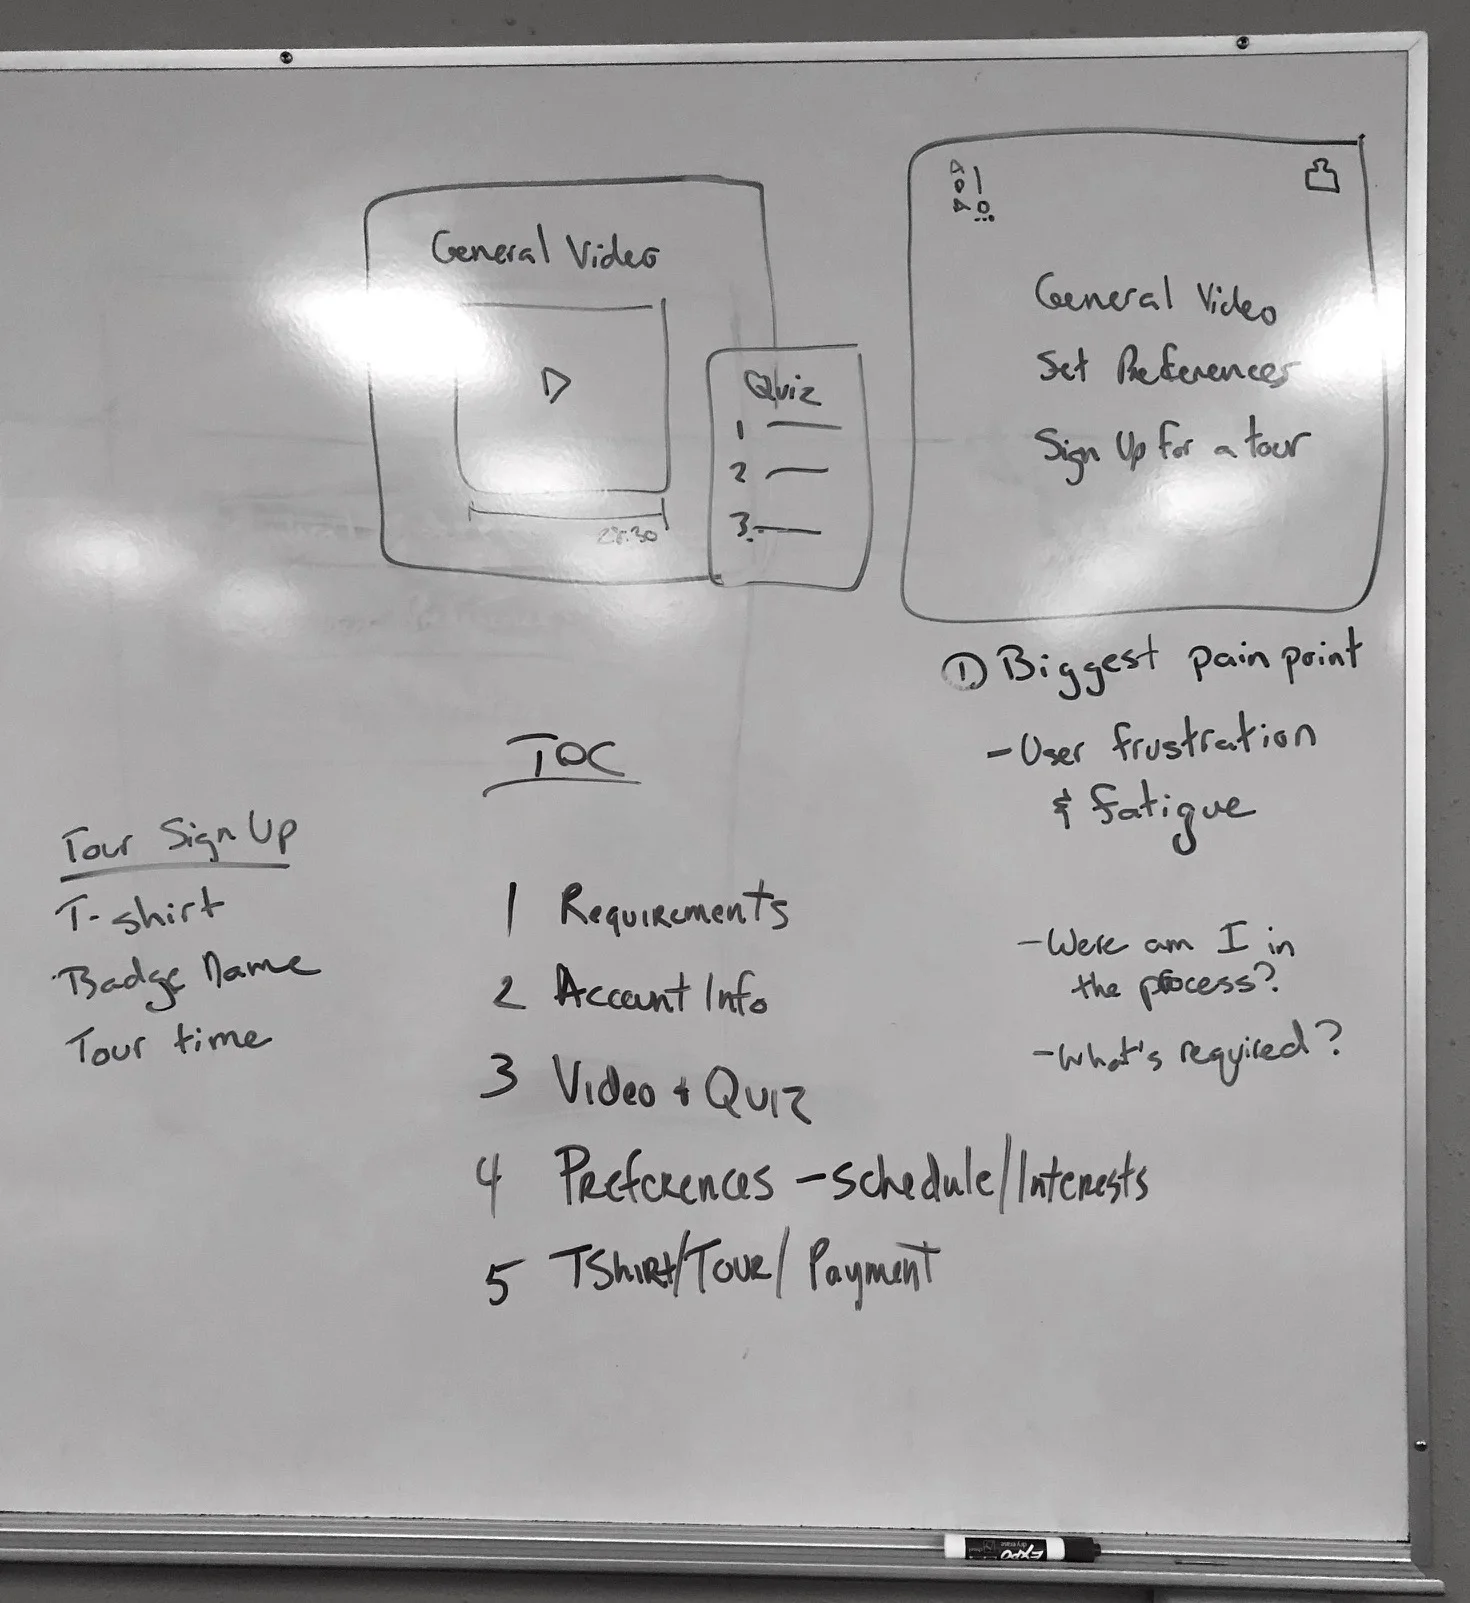 General Video
28:30
Quiz
1
2
3.
General Video
Set Preferences
Sign Up for a tour
① Biggest pain point
- User frustration
& fatigue
- Were am I in
the process?
- What's required?
TOC
1 Requirements
2 Account Info
3 Video + Quiz
4 Preferences - Schedule/Interests
5 TShirt/Tour/Payment
Tour Sign Up
T-shirt
Badge Name
Tour time
EXPO
dry erase